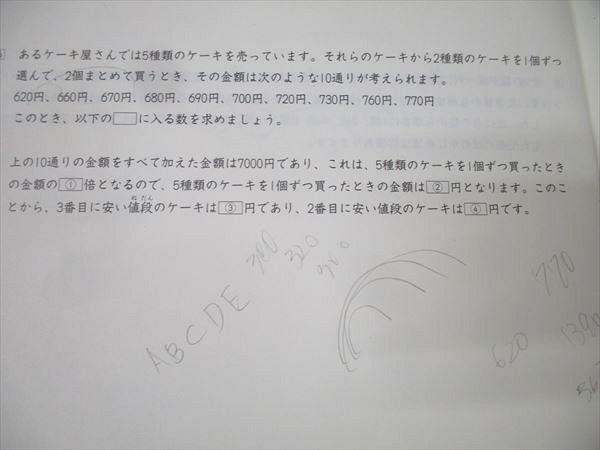 あるケーキ屋さんでは5種類のケーキを売っています。それらのケーキから2種類のケーキを1個ずつ
選んで、2個まとめて買うとき、その金額は次のような10通りが考えられます。
620円、660円、670円、680円、690円、700円、720円、730円、760円、770円
このとき、以下の□に入る数を求めましょう。
上の10通りの金額をすべて加えた金額は7000円であり、これは、5種類のケーキを1個ずつ買ったとき
の金額の①倍となるので、5種類のケーキを1個ずつ買ったときの金額は②円となります。このこ
ねだん
とから、3番目に安い値段のケーキは③円であり、2番目に安い値段のケーキは④円です。
320
770
ABCDE
620
1390